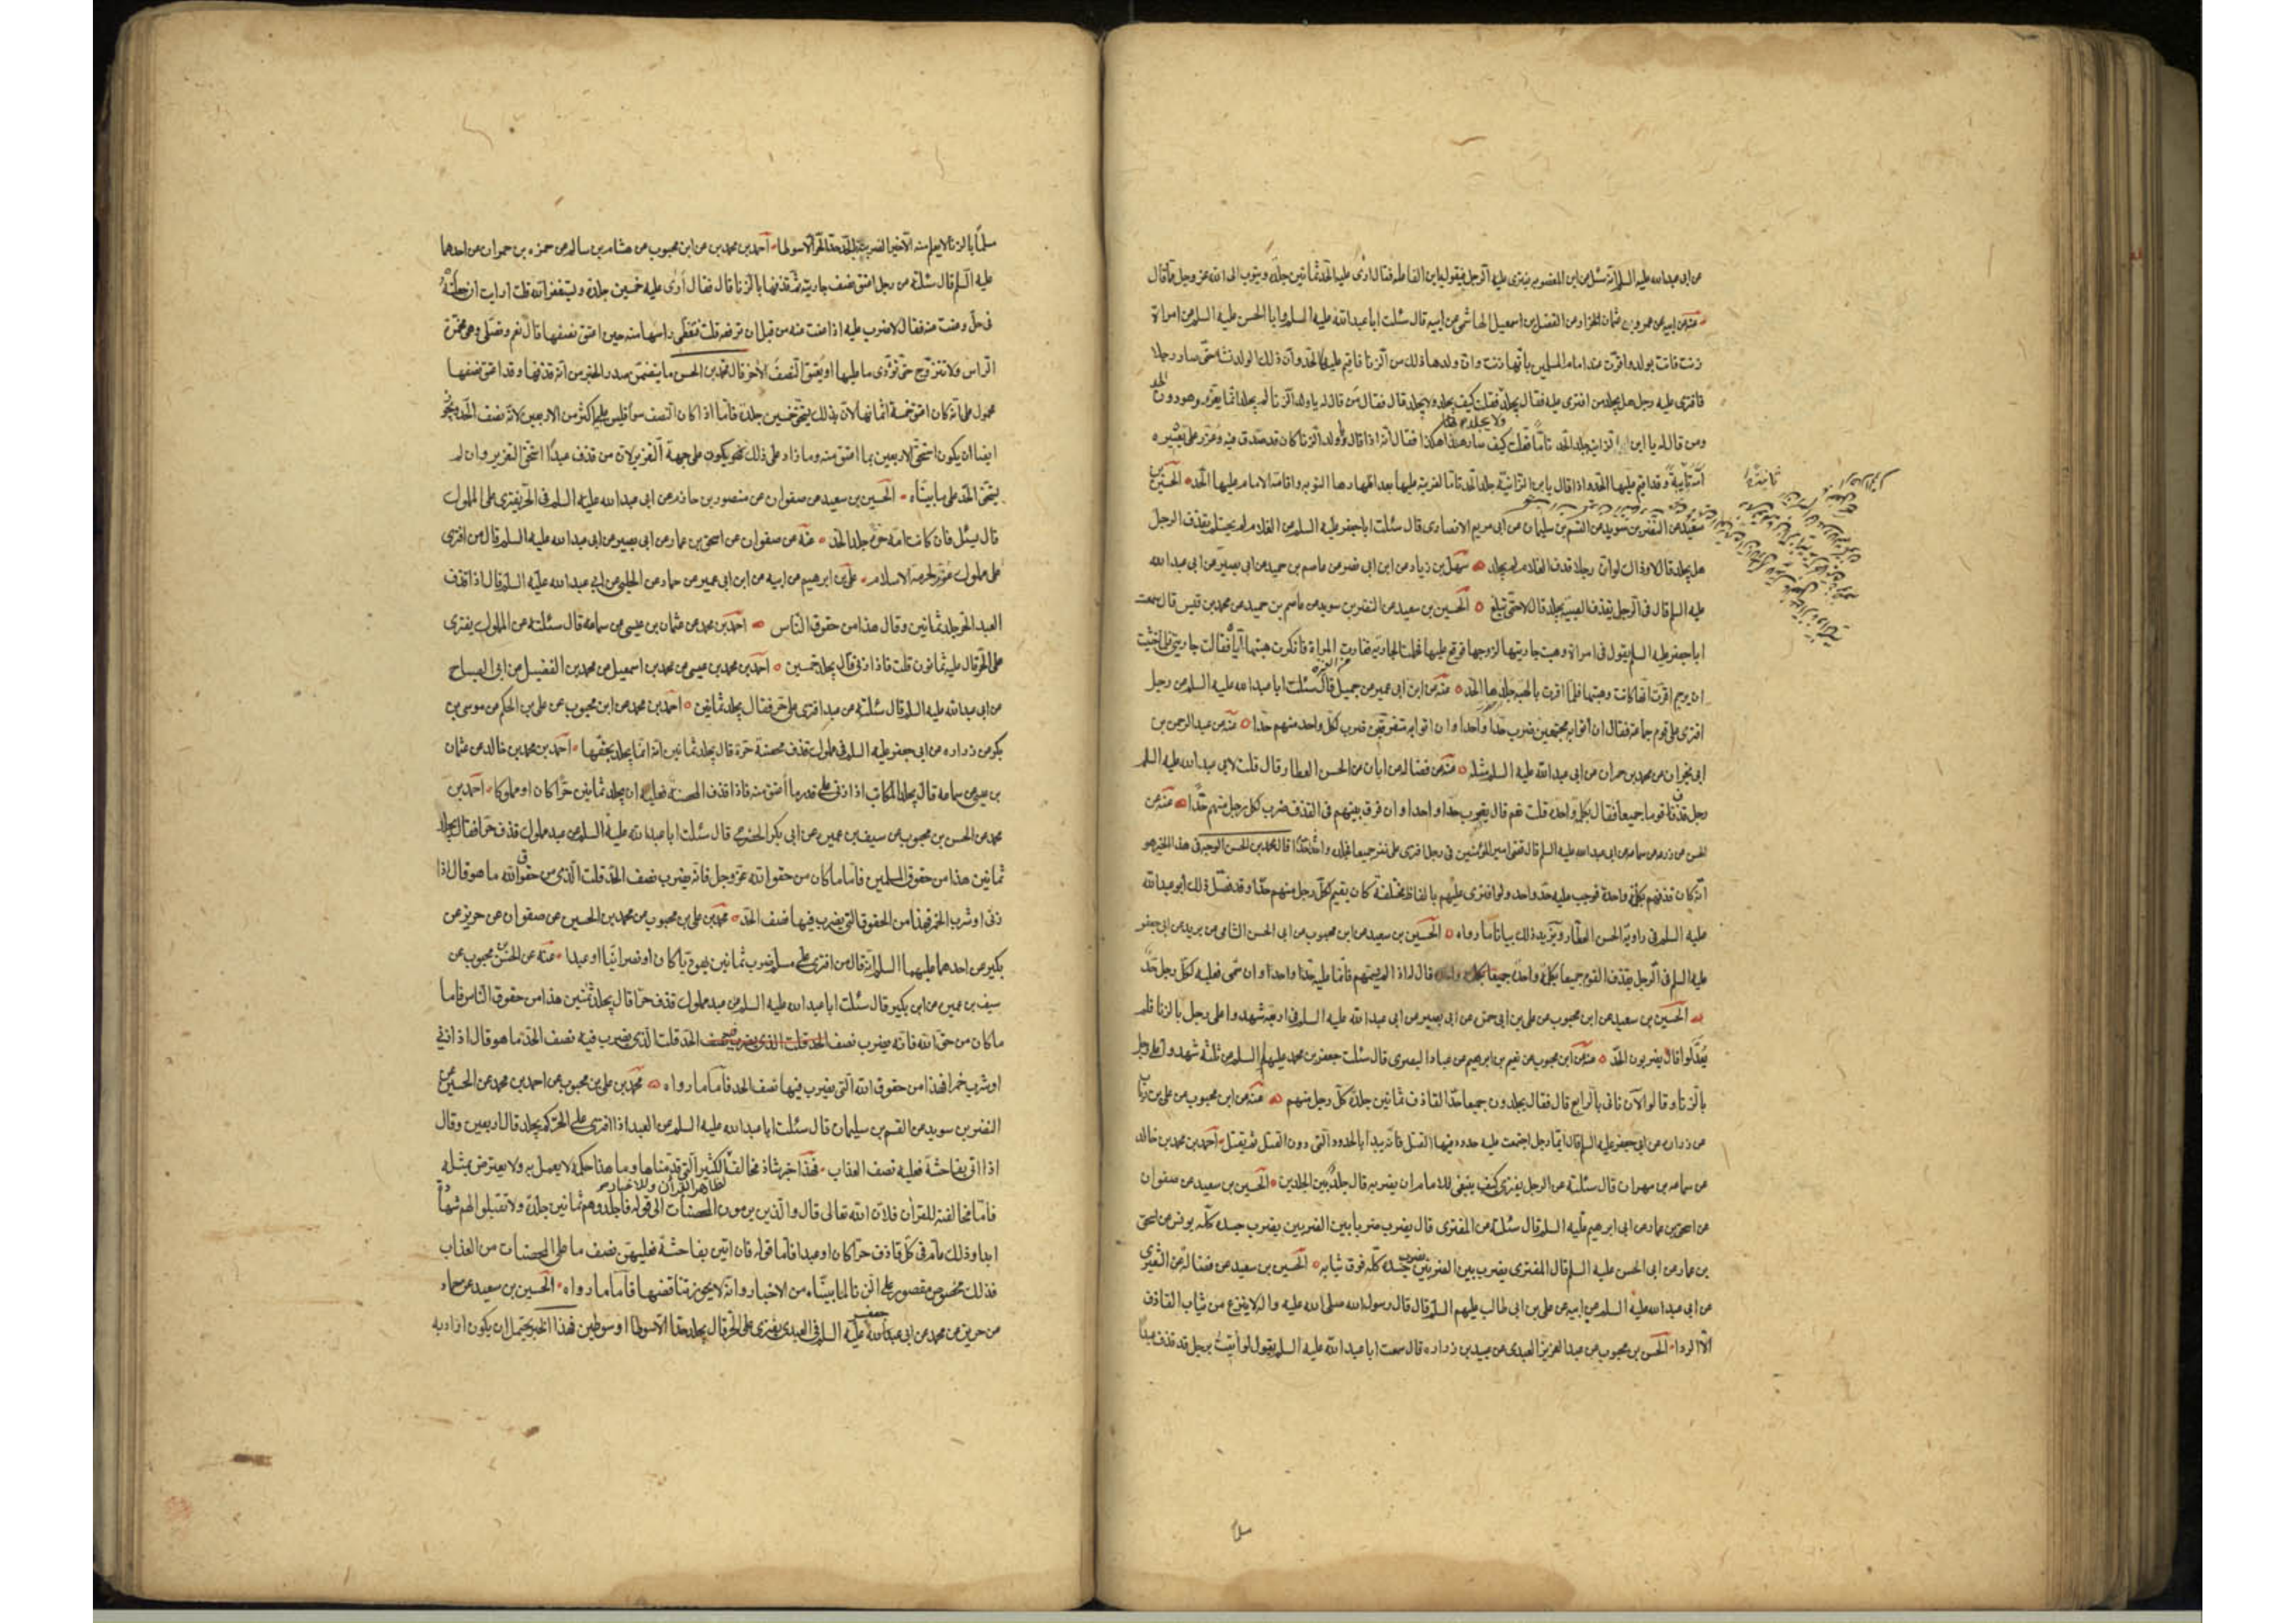 من ابى عبد الله عليه السلم انه سئل عن ابن المغصوبه يفترى عليه الرجل فيقول يا ابن الفاعله فقال ارى عليه الحد ثمانين جلده ويتوب الى الله عز وجل مما قال
عنه عن ابيه عن عمرو بن عثمان الخزاز عن الفضل بن اسمعيل الهاشمى عن ابيه قال سئلت ابا عبد الله عليه السلم وابا الحسن عليه السلم عن امراة
زنت فاتت بولد واقرت عند امام المسلمين بانها زنت وان ولدها ذلك من الزنا فاقيم عليها الحد وان ذلك الولد نشا حتى صار رجلا
فافترى عليه رجل هل يجلد من افترى عليه فقال يجلد ولا يجلد فقلت كيف يجلد ولا يجلد قال فقال من قال له يا ولد الزنا لم يجلد انما يعزر وهو دون الحد
ومن قال له يا ابن الزانيه جلد الحد تاما فقلت كيف صار هذا هكذا فقال انه اذا قال يا ولد الزنا كان قد صدق فيه وعزر على تعييره
امه ثانية وقد اقيم عليها الحد واذا قال يا بن الزانية جلد الحد تاما لفريته عليها بعد اظهارها التوبه واقامة الامام عليها الحد الحسين بن
سعيد عن النضر بن سويد عن القسم بن سليمان عن ابى مريم الانصارى قال سئلت ابا جعفر عليه السلم عن الغلام لم يحتلم يقذف الرجل
هل يجلد قال لا وذاك لو ان رجلا قذف الغلام لم يجلد سهل بن زياد عن ابن ابى نصر عن عاصم بن حميد عن ابى بصير عن ابى عبد الله
عليه السلم قال فى الرجل يقذف الصبية يجلد قال لا حتى تبلغ الحسين بن سعيد عن النضر بن سويد عن عاصم بن حميد عن محمد بن قيس قال سمعت
ابا جعفر عليه السلم يقول فى امراة وهبت جاريتها لزوجها فوقع عليها فحملت الجاريه فغارت المراة فانكرت هبتها اياه فقالت جاريتى فلما خشيت
ان يرجم اقرت انها كانت وهبتها فلما اقرت بالهبه جلدها الحد عنه عن ابن ابى عمير عن جميل قال سئلت ابا عبد الله عليه السلم عن رجل
افترى على قوم جماعة فقال ان اتوا به مجتمعين ضرب حدا واحدا وان اتوا به متفرقين ضرب لكل واحد منهم حدا عنه عن عبد الرحمن بن
ابى نجران عن محمد بن حمران عن ابى عبد الله عليه السلم مثله عنه عن فضاله عن ابان عن الحسن العطار قال قلت لابى عبد الله عليه السلم
رجل قذف قوما جميعا فقال بكلمة واحدة قلت نعم قال يضرب حدا واحدا وان فرق بينهم فى القذف ضرب لكل رجل منهم حدا عنه عن
الحسن عن زرعه عن سماعه عن ابى عبد الله عليه السلم قال قضى امير المؤمنين فى رجل افترى على نفر جميعا فجلده حدا واحدا قال محمد بن الحسن الوجه فى هذا الخبر هو
انه كان قذفهم بكلمة واحدة فوجب عليه حد واحد ولو افترى عليهم بالفاظ مختلفة كان يقيم لكل رجل منهم حدا وقد فصل ذلك ابو عبد الله
عليه السلم فى رواية الحسن العطار ويزيد ذلك بيانا ما رواه الحسين بن سعيد عن ابن محبوب عن ابى الحسن الشامى عن بريد عن ابى جعفر
عليه السلم فى الرجل يقذف القوم جميعا بكلمة واحدة قال له اذا لم يسمهم فانما عليه حد واحد وان سمى فعليه لكل رجل حد
الحسين بن سعيد عن ابن محبوب عن على بن ابى حمزه عن ابى بصير عن ابى عبد الله عليه السلم فى اربعة شهدوا على رجل بالزنا فلم
يعدلوا قال يضربون الحد عنه عن ابن محبوب عن نعيم بن ابرهيم عن عباد البصرى قال سئلت جعفر بن محمد عليهم السلم عن ثلثة شهدوا على رجل
بالزنا وقالوا الان ناتى بالرابع قال فقال يجلدون جميعا حد القاذف ثمانين جلدة كل رجل منهم عنه عن ابن محبوب عن على بن رئاب
عن زراره عن ابى جعفر عليه السلم قال ايما رجل اجتمعت عليه حدود فيها القتل فانه يبدا بالحدود التى دون القتل ثم يقتل احمد بن محمد بن خالد
عن سماعه بن مهران قال سئلته عن الرجل يفترى كيف ينبغى للامام ان يضربه قال جلد بين الجلدين الحسين بن سعيد عن صفوان
عن اسحق بن عمار عن ابى ابرهيم عليه السلم قال سئلته عن المفترى قال يضرب ضربا بين الضربين يضرب جسده كله يونس عن اسحق
بن عمار عن ابى الحسن عليه السلم قال المفترى يضرب بين الضربين يضرب جسده كله فوق ثيابه الحسين بن سعيد عن فضالة عن الشعيرى
عن ابى عبد الله عليه السلم عن ابيه عن على بن ابى طالب عليهم السلم قال قال رسول الله صلى الله عليه واله لا ينزع من ثياب القاذف
الا الردا الحسن بن محبوب عن عبد العزيز العبدى عن عبيد بن زراره قال سمعت ابا عبد الله عليه السلم يقول لو اتيت برجل قد قذف عبدا
مسلما بالزنا لا يعلم منه الا خيرا لضربته الحد حد الحر الا سوطا احمد بن محمد عن ابن محبوب عن هشام بن سالم عن حمزه بن حمران عن احدهما
عليه السلم قال سئلته عن رجل اعتق نصف جاريته ثم قذفها بالزنا قال فقال ارى عليه خمسين جلدة ويستغفر الله قلت ارايت ان جعلته
فى حل وعفت عنه فقال لا ضرب عليه اذا عفت عنه من قبل ان ترفعه قلت فتغطى راسها منه حين اعتق نصفها قال نعم وتصلى وهى مخمرة
الراس ولا تتزوج حتى تؤدى ما عليها او يعتق النصف الاخر قال محمد بن الحسن ما يتضمن صدر الخبر من انه قذفها وقد اعتق نصفها
محمول على انه كان اعتق خمسة اثمانها لان بذلك يستحق خمسين جلدة فاما اذا كان النصف سوا فليس عليه اكثر من الاربعين لانه نصف الحد ويجوز
ايضا ان يكون استحق الاربعين بما اعتق منه وما زاد على ذلك فهو يكون على جهة التعزير لان من قذف عبدا استحق التعزير وان لم
يستحق الحد على ما بيناه الحسين بن سعيد عن صفوان عن منصور بن حازم عن ابى عبد الله عليه السلم فى الحر يفترى على المملوك
قال يسئل فان كانت امه حرة جلد الحد عنه عن صفوان عن اسحق بن عمار عن ابى بصير عن ابى عبد الله عليه السلم قال من افترى
على مملوك عزر لحرمة الاسلام على بن ابرهيم عن ابيه عن ابن ابى عمير عن حماد عن الحلبى عن ابى عبد الله عليه السلم قال اذا قذف
العبد الحر جلد ثمانين وقال هذا من حقوق الناس احمد بن محمد عن عثمان بن عيسى عن سماعه قال سئلته عن المملوك يفترى
على الحر قال عليه ثمانون قلت فاذا زنى قال يجلد خمسين احمد بن محمد بن عيسى عن محمد بن اسمعيل عن محمد بن الفضيل عن ابى الصباح
عن ابى عبد الله عليه السلم قال سئلته عن عبد افترى على حر فقال يجلد ثمانين احمد بن محمد عن ابن محبوب عن على بن الحكم عن موسى بن
بكر عن زراره عن ابى جعفر عليه السلم فى مملوك قذف محصنة حرة قال يجلد ثمانين لانه انما يجلد بحقها احمد بن محمد بن خالد عن عثمان
بن عيسى عن سماعه قال يجلد المكاتب اذا زنى على قدر ما اعتق منه فاذا قذف المحصنة فعليه ان يجلد ثمانين حرا كان او مملوكا احمد بن
محمد عن الحسن بن محبوب عن سيف بن عميره عن ابى بكر الحضرمى قال سئلت ابا عبد الله عليه السلم عن عبد مملوك قذف حرا فقال يجلد
ثمانين هذا من حقوق المسلمين فاما ما كان من حقوق الله عز وجل فانه يضرب نصف الحد قلت الذى من حقوق الله ما هو قال اذا
زنى او شرب الخمر فهذا من الحقوق التى يضرب فيها نصف الحد محمد بن على بن محبوب عن محمد بن الحسين عن صفوان عن حريز عن
بكير عن احدهما عليهما السلم انه قال من افترى على مسلم ضرب ثمانين يهوديا كان او نصرانيا او عبدا عنه عن الحسن بن محبوب عن
سيف بن عميره عن ابن بكير قال سئلت ابا عبد الله عليه السلم عن عبد مملوك قذف حرا قال يجلد ثمنين هذا من حقوق الناس فاما
ما كان من حق الله فانه يضرب نصف الحد قلت الذى يضرب فيه نصف الحد ما هو قال اذا زنى
او شرب خمرا فهذا من حقوق الله التى يضرب فيها نصف الحد فاما ما رواه محمد بن على بن محبوب عن احمد بن محمد عن الحسين عن
النضر بن سويد عن القسم بن سليمان قال سئلت ابا عبد الله عليه السلم عن العبد اذا افترى على الحر كم يجلد قال اربعين وقال
اذا اتى بفاحشة فعليه نصف العذاب فهذا خبر شاذ مخالف لظاهر القران وللاخبار الكثيرة التى قدمناها وما هذا حكمه لا يعمل به ولا يعترض بمثله
فاما مخالفته للقران فلان الله تعالى قال والذين يرمون المحصنات الى قوله فاجلدوهم ثمانين جلدة ولا تقبلوا لهم شهادة
ابدا وذلك عام فى كل قاذف حرا كان او عبدا فاما قوله فان اتين بفاحشة فعليهن نصف ما على المحصنات من العذاب
فذلك مخصوص مقصور على الزنا لما بيناه من الاخبار وانه لا يجوز تناقضها فاما ما رواه الحسين بن سعيد عن حماد
عن حريز عن محمد عن ابى جعفر عليه السلم فى العبد يفترى على الحر قال يجلد حدا الا سوطا او سوطين فهذا الخبر يحتمل ان يكون اراد به